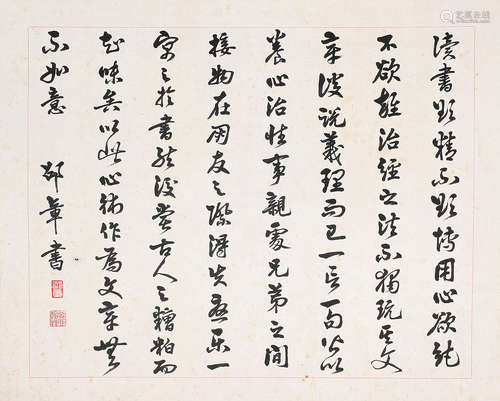 讀書欲精不欲博用心欲純
不欲雜治經之法不獨玩其文
章談說義理而已一言一句皆以
養心治性事親處兄弟之間
接物在朋友之際得失憂樂一
考之於書然後嘗古人之糟粕而
知味矣以此心術作為文章無
不如意 邵章書